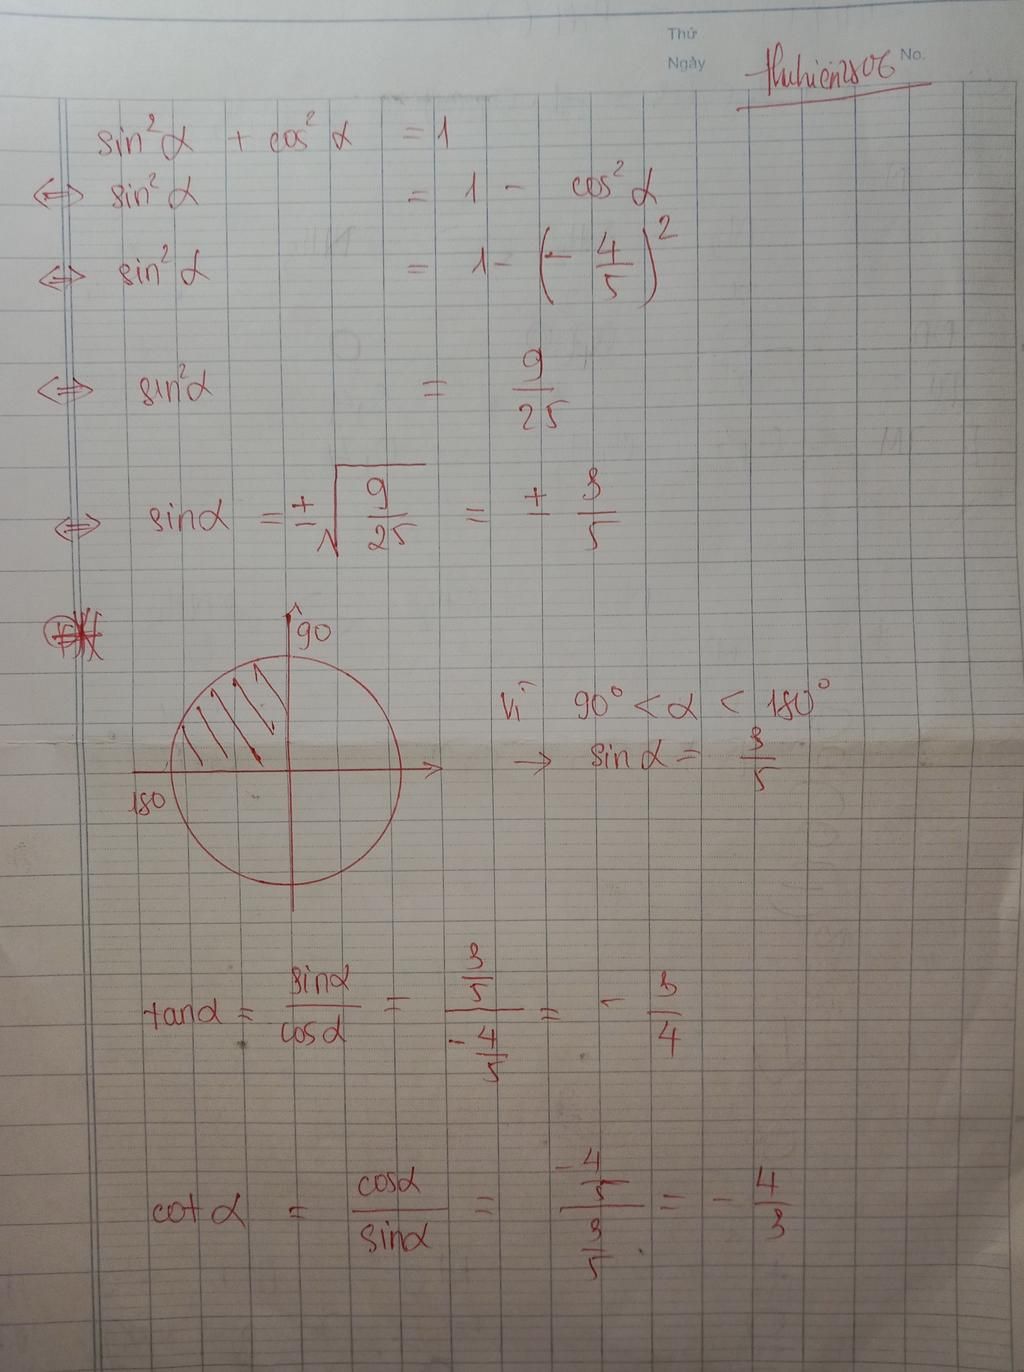 Thứ
Ngày
No.
thuhien2806
sin²α + cos²α = 1
⇔ sin²α = 1 - cos²α
⇔ sin²α = 1 - (- 4/5)²
⇔ sin²α = 9/25
⇔ sinα = ±√(9/25) = ± 3/5
90
180
Vì 90° < α < 180°
→ sinα = 3/5
tanα = sinα/cosα = (3/5)/(-4/5) = - 3/4
cotα = cosα/sinα = (-4/5)/(3/5) = - 4/3